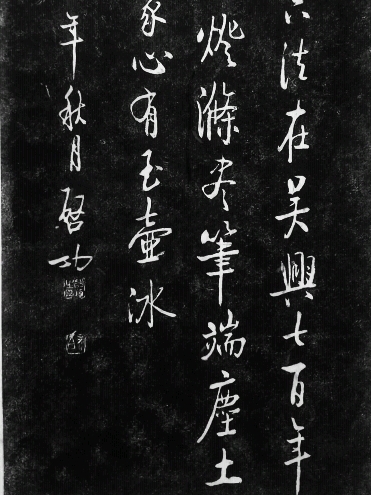 六法在吴興七百年
燈滌盡筆端塵土
家心有玉壺冰
年秋月啓功